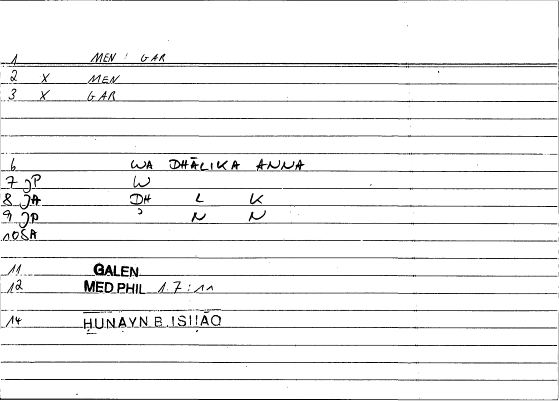 1 MEN : GAR
2 X MEN
3 X GAR
6 WA DHĀLIKA ANNA
7 JP W
8 JA DH L K
9 JP ʾ N N
10 SA
11 GALEN
12 MED PHIL 1.7:11
14 ḤUNAYN B. ISḤĀQ